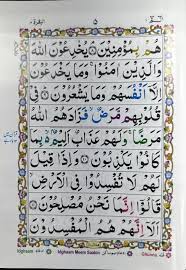 البقرة ۵
هُمْ بِمُؤْمِنِيْنَ يُخٰدِعُوْنَ اللّٰهَ
وَالَّذِيْنَ اٰمَنُوْا وَمَا يَخْدَعُوْنَ
اِلَّآ اَنْفُسَهُمْ وَمَا يَشْعُرُوْنَ فِيْ
قُلُوْبِهِمْ مَّرَضٌ فَزَادَهُمُ اللّٰهُ
مَرَضًا وَلَهُمْ عَذَابٌ اَلِيْمٌ بِمَا
كَانُوْا يَكْذِبُوْنَ وَاِذَا قِيْلَ
لَهُمْ لَا تُفْسِدُوْا فِي الْاَرْضِ
قَالُوْٓا اِنَّمَا نَحْنُ مُصْلِحُوْنَ
اَلَآ اِنَّهُمْ هُمُ الْمُفْسِدُوْنَ
Idghaam Meem Saakin